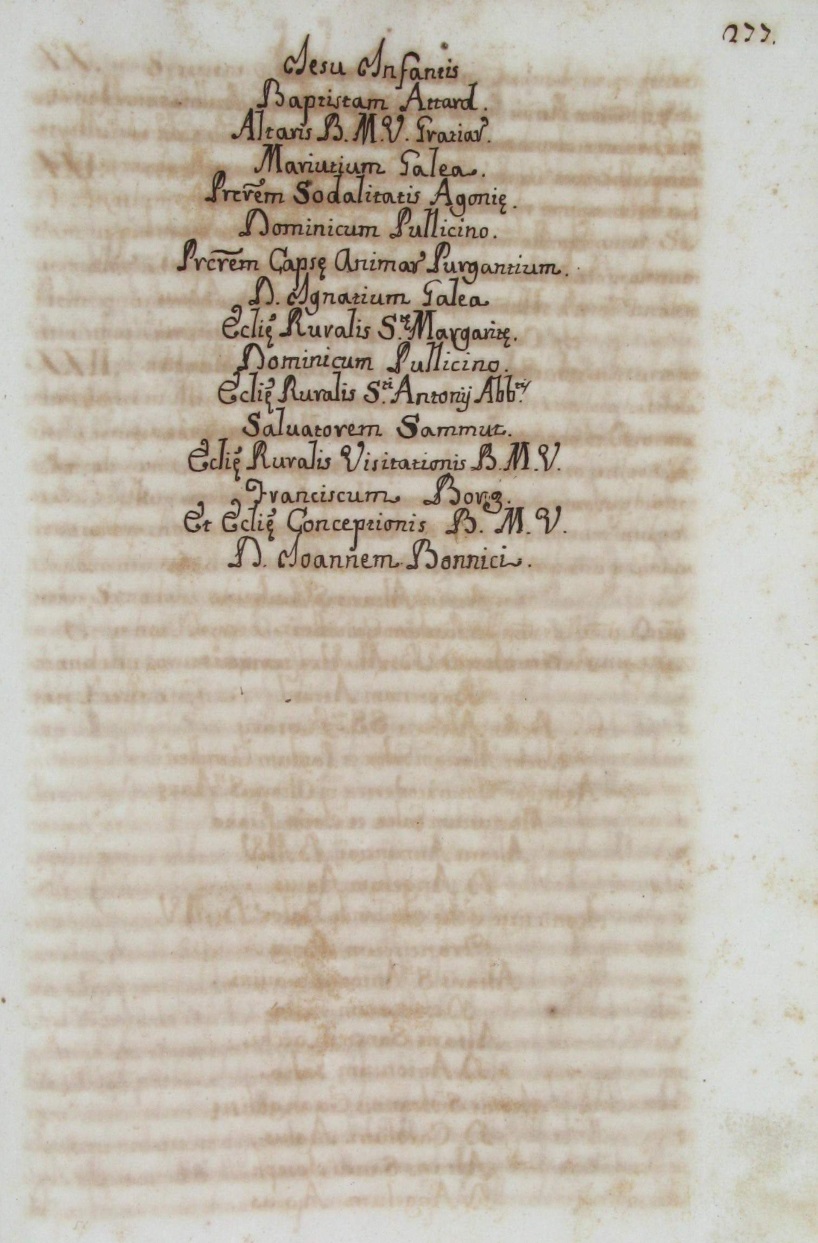 277.
Jesu Infantis
Baptistam Attard.
Altaris B. M. V. Gratiar̃.
Mariutium Galea.
Prcr̃em Sodalitatis Agonię.
Dominicum Pullicino.
Prcr̃em Capsę Animar̃ Purgantium.
D. Ignatium Galea
Eclię Ruralis S.tę Margaritę.
Dominicum Pullicino.
Eclię Ruralis S.ti Antonij Abb.tis
Saluatorem Sammut.
Eclię Ruralis Visitationis B. M. V.
Franciscum Borg.
Et Eclię Conceptionis B. M. V.
D. Joannem Bonnici.